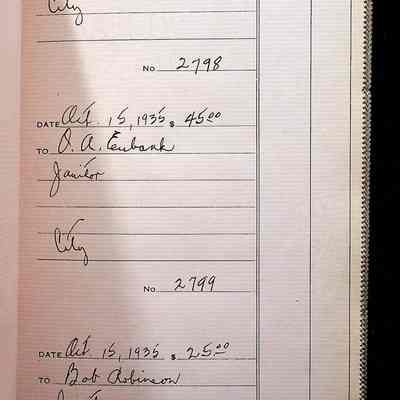 City
No 2798
DATE Oct. 15, 1935 $ 45.00
TO O. A. Eubank
Janitor
City
No 2799
DATE Oct. 15, 1935 $ 25.00
TO Bob Robinson